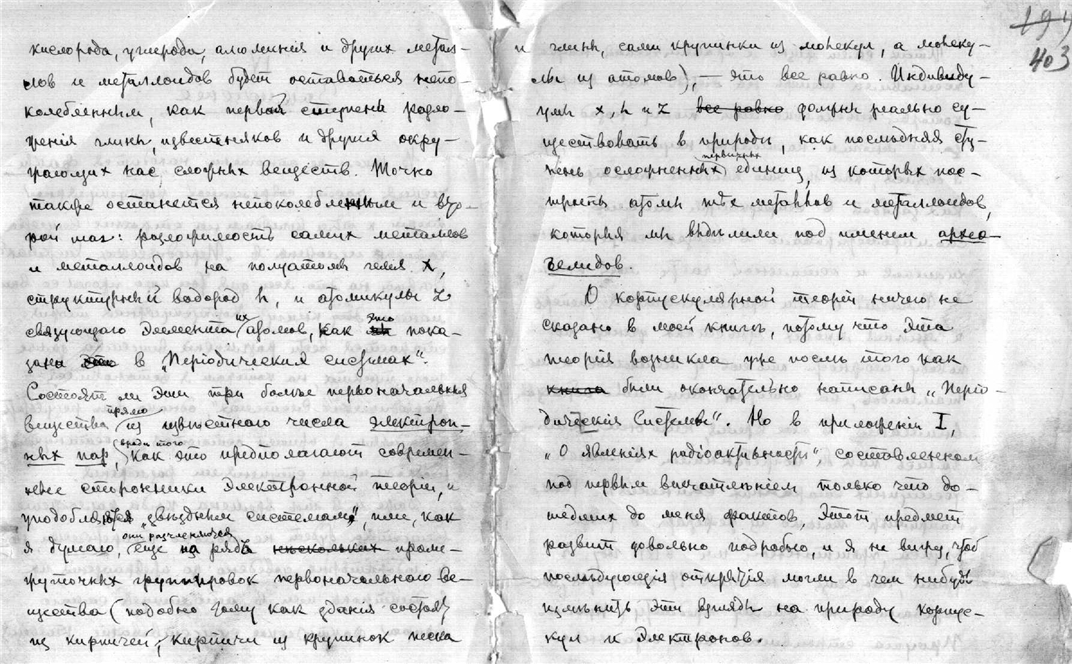 кислорода, углерода, алюминія и других метал-
лов и металлоидов будет оставаться непо-
колебленным, как первая ступень разло-
женія глины, известняков и другия окру-
жающих нас сложных веществ. Точно
также останется непоколебленным и вто-
рой шаг: разложимость самих металлов
и металлоидов на полуатомы гелія x,
структурный водород h, и атомикулы z
связующаго элемента их атомов, как это пока-
зано в „Періодическия системах".
Состоят ли эти три болѣе первоначальныя
вещества прямо из извѣстнаго числа электрон-
ных пар, вродѣ того как это предполагают современ-
ные сторонники электронной теоріи, и
уподобляются „звѣздным системам", или, как
я думаю, они расчленяются еще на ряд нескольких проме-
жуточных группировок первоначальнаго ве-
щества (подобно тому как зданія состоят
из кирпичей, кирпичи из крупинок песка
и глины, сами крупинки из молекул, а молеку-
лы из атомов), — это все равно. Индивиду-
умы x, h и z все равно должны реально су-
ществовать в природѣ, как послѣдняя сту-
пень осложненных первичных единиц, из которых пос-
троены атомы тѣх металлов и металлоидов,
которыя мы выдѣлили под именем архео-
гелидов.
О корпускулярной теоріи ничего не
сказано в моей книгѣ, потому что эта
теорія возникла уже послѣ того как
книга были окончательно написаны „Періо-
дическія Системы". Но в приложеніи I,
„О явленіях радіоактивности", составленном
под первым впечатлѣніем только что до-
шедших до меня фактов, этот предмет
развит довольно подробно, и я не вижу, чтоб
послѣдующія открытія могли в чем нибудь
измѣнить эти взгляды на природу корпус-
кул и электронов.
191
403